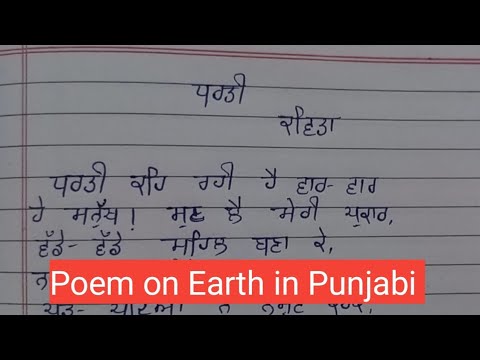 ਧਰਤੀ
ਕਵਿਤਾ
ਧਰਤੀ ਕਹਿ ਰਹੀ ਹੈ ਵਾਰ-ਵਾਰ
ਹੇ ਮਨੁੱਖ! ਸੁਣ ਲੈ ਮੇਰੀ ਪੁਕਾਰ,
ਵੱਡੇ-ਵੱਡੇ ਮਹਿਲ ਬਣਾ ਕੇ,
Poem on Earth in Punjabi